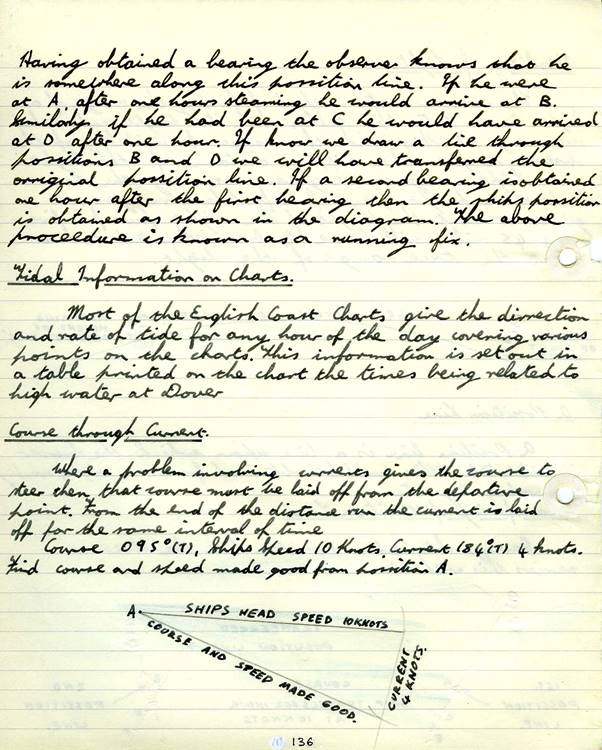 Having obtained a bearing the observer knows that he
is somewhere along this possition line. If he were
at A, after one hours steaming he would arrive at B.
Similarly if he had been at C he would have arrived
at D after one hour. If know we draw a lie through
possitions B and D we will have transferred the
orriginal possition line. If a second bearing is obtained
one hour after the first bearing then the ships possition
is obtained as shown in the diagram. The above
proceedure is known as a running fix.
Tidal Information on Charts.
Most of the English Coast Charts give the dirrection
and rate of tide for any hour of the day covering various
points on the charts. This information is set out in
a table printed on the chart the times being related to
high water at Dover
Course through Current.
Where a problem involving currents gives the course to
steer then that course must be laid off from the departive
point. From the end of the distance run the current is laid
off for the same interval of time
Course 095°(T), Ships Speed 10 Knots, Current 184°(T) 4 knots.
Find course and speed made good from possition A.
A. SHIPS HEAD SPEED 10KNOTS
COURSE AND SPEED MADE GOOD.
CURRENT
4 KNOTS.
136